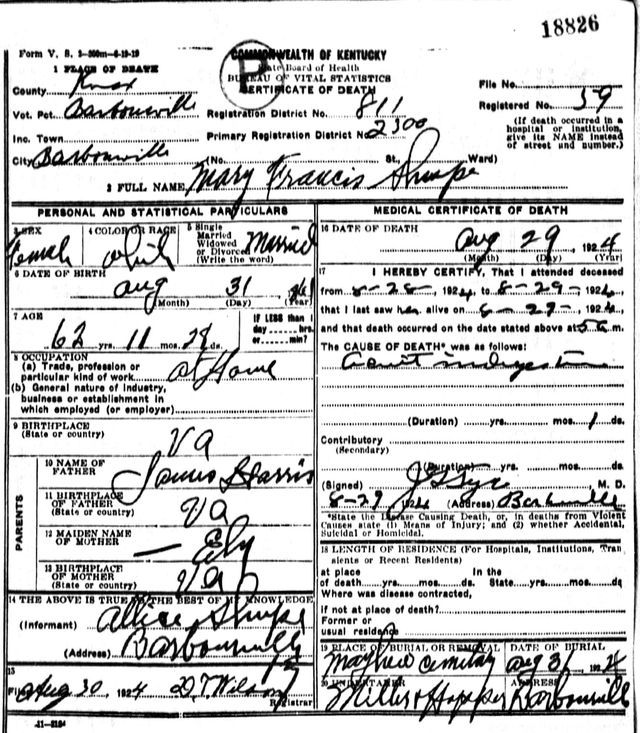 18826
Form V. S. 1-300m-6-19-19
COMMONWEALTH OF KENTUCKY
State Board of Health
BUREAU OF VITAL STATISTICS
CERTIFICATE OF DEATH
1 PLACE OF DEATH
County Knox
File No.
Vot. Pct. Barbourville
Registration District No. 811
Registered No. 59
Inc. Town
Primary Registration District No. 2300
(If death occurred in a hospital or institution, give its NAME instead of street and number.)
City Barbourville (No. St., Ward)
2 FULL NAME Mary Francis
PERSONAL AND STATISTICAL PARTICULARS
3 SEX Female
4 COLOR OR RACE White
5 Single Married Widowed or Divorced (Write the word) Married
6 DATE OF BIRTH
Aug 31
(Month) (Day) (Year)
7 AGE
62 yrs. 11 mos. 28 ds.
IF LESS than 1 day hrs. or min?
8 OCCUPATION
(a) Trade, profession or particular kind of work at Home
(b) General nature of industry, business or establishment in which employed (or employer)
9 BIRTHPLACE
(State or country) Va
PARENTS
10 NAME OF FATHER James Harris
11 BIRTHPLACE OF FATHER (State or country) Va
12 MAIDEN NAME OF MOTHER — Ely
13 BIRTHPLACE OF MOTHER (State or country) Va
14 THE ABOVE IS TRUE TO THE BEST OF MY KNOWLEDGE
(Informant) Allice
(Address) Barbourville
15
Filed Aug 30, 1924 D T Wilson
Registrar
11-3184
MEDICAL CERTIFICATE OF DEATH
16 DATE OF DEATH
Aug 29, 1924
(Month) (Day) (Year)
17 I HEREBY CERTIFY, That I attended deceased
from 8-28-, 1924, to 8-29-, 1924,
that I last saw her alive on 8-29-, 1924,
and that death occurred on the date stated above at 5 a m.
The CAUSE OF DEATH* was as follows:
Acute indigestion
(Duration) yrs. mos. 1 ds.
Contributory
(Secondary)
(Duration) yrs. mos. ds.
(Signed) M. D.
8-29 1924 (Address) Barbourville
*State the Disease Causing Death, or, in deaths from Violent
Causes state (1) Means of Injury; and (2) whether Accidental,
Suicidal or Homicidal.
18 LENGTH OF RESIDENCE (For Hospitals, Institutions, Transients or Recent Residents)
at place In the
of death yrs. mos. ds. State yrs. mos. ds.
Where was disease contracted,
if not at place of death?
Former or
usual residence
19 PLACE OF BURIAL OR REMOVAL
DATE OF BURIAL
Cemetery Aug 31, 1924
20 UNDERTAKER
ADDRESS
Miller & Hopper Barbourville